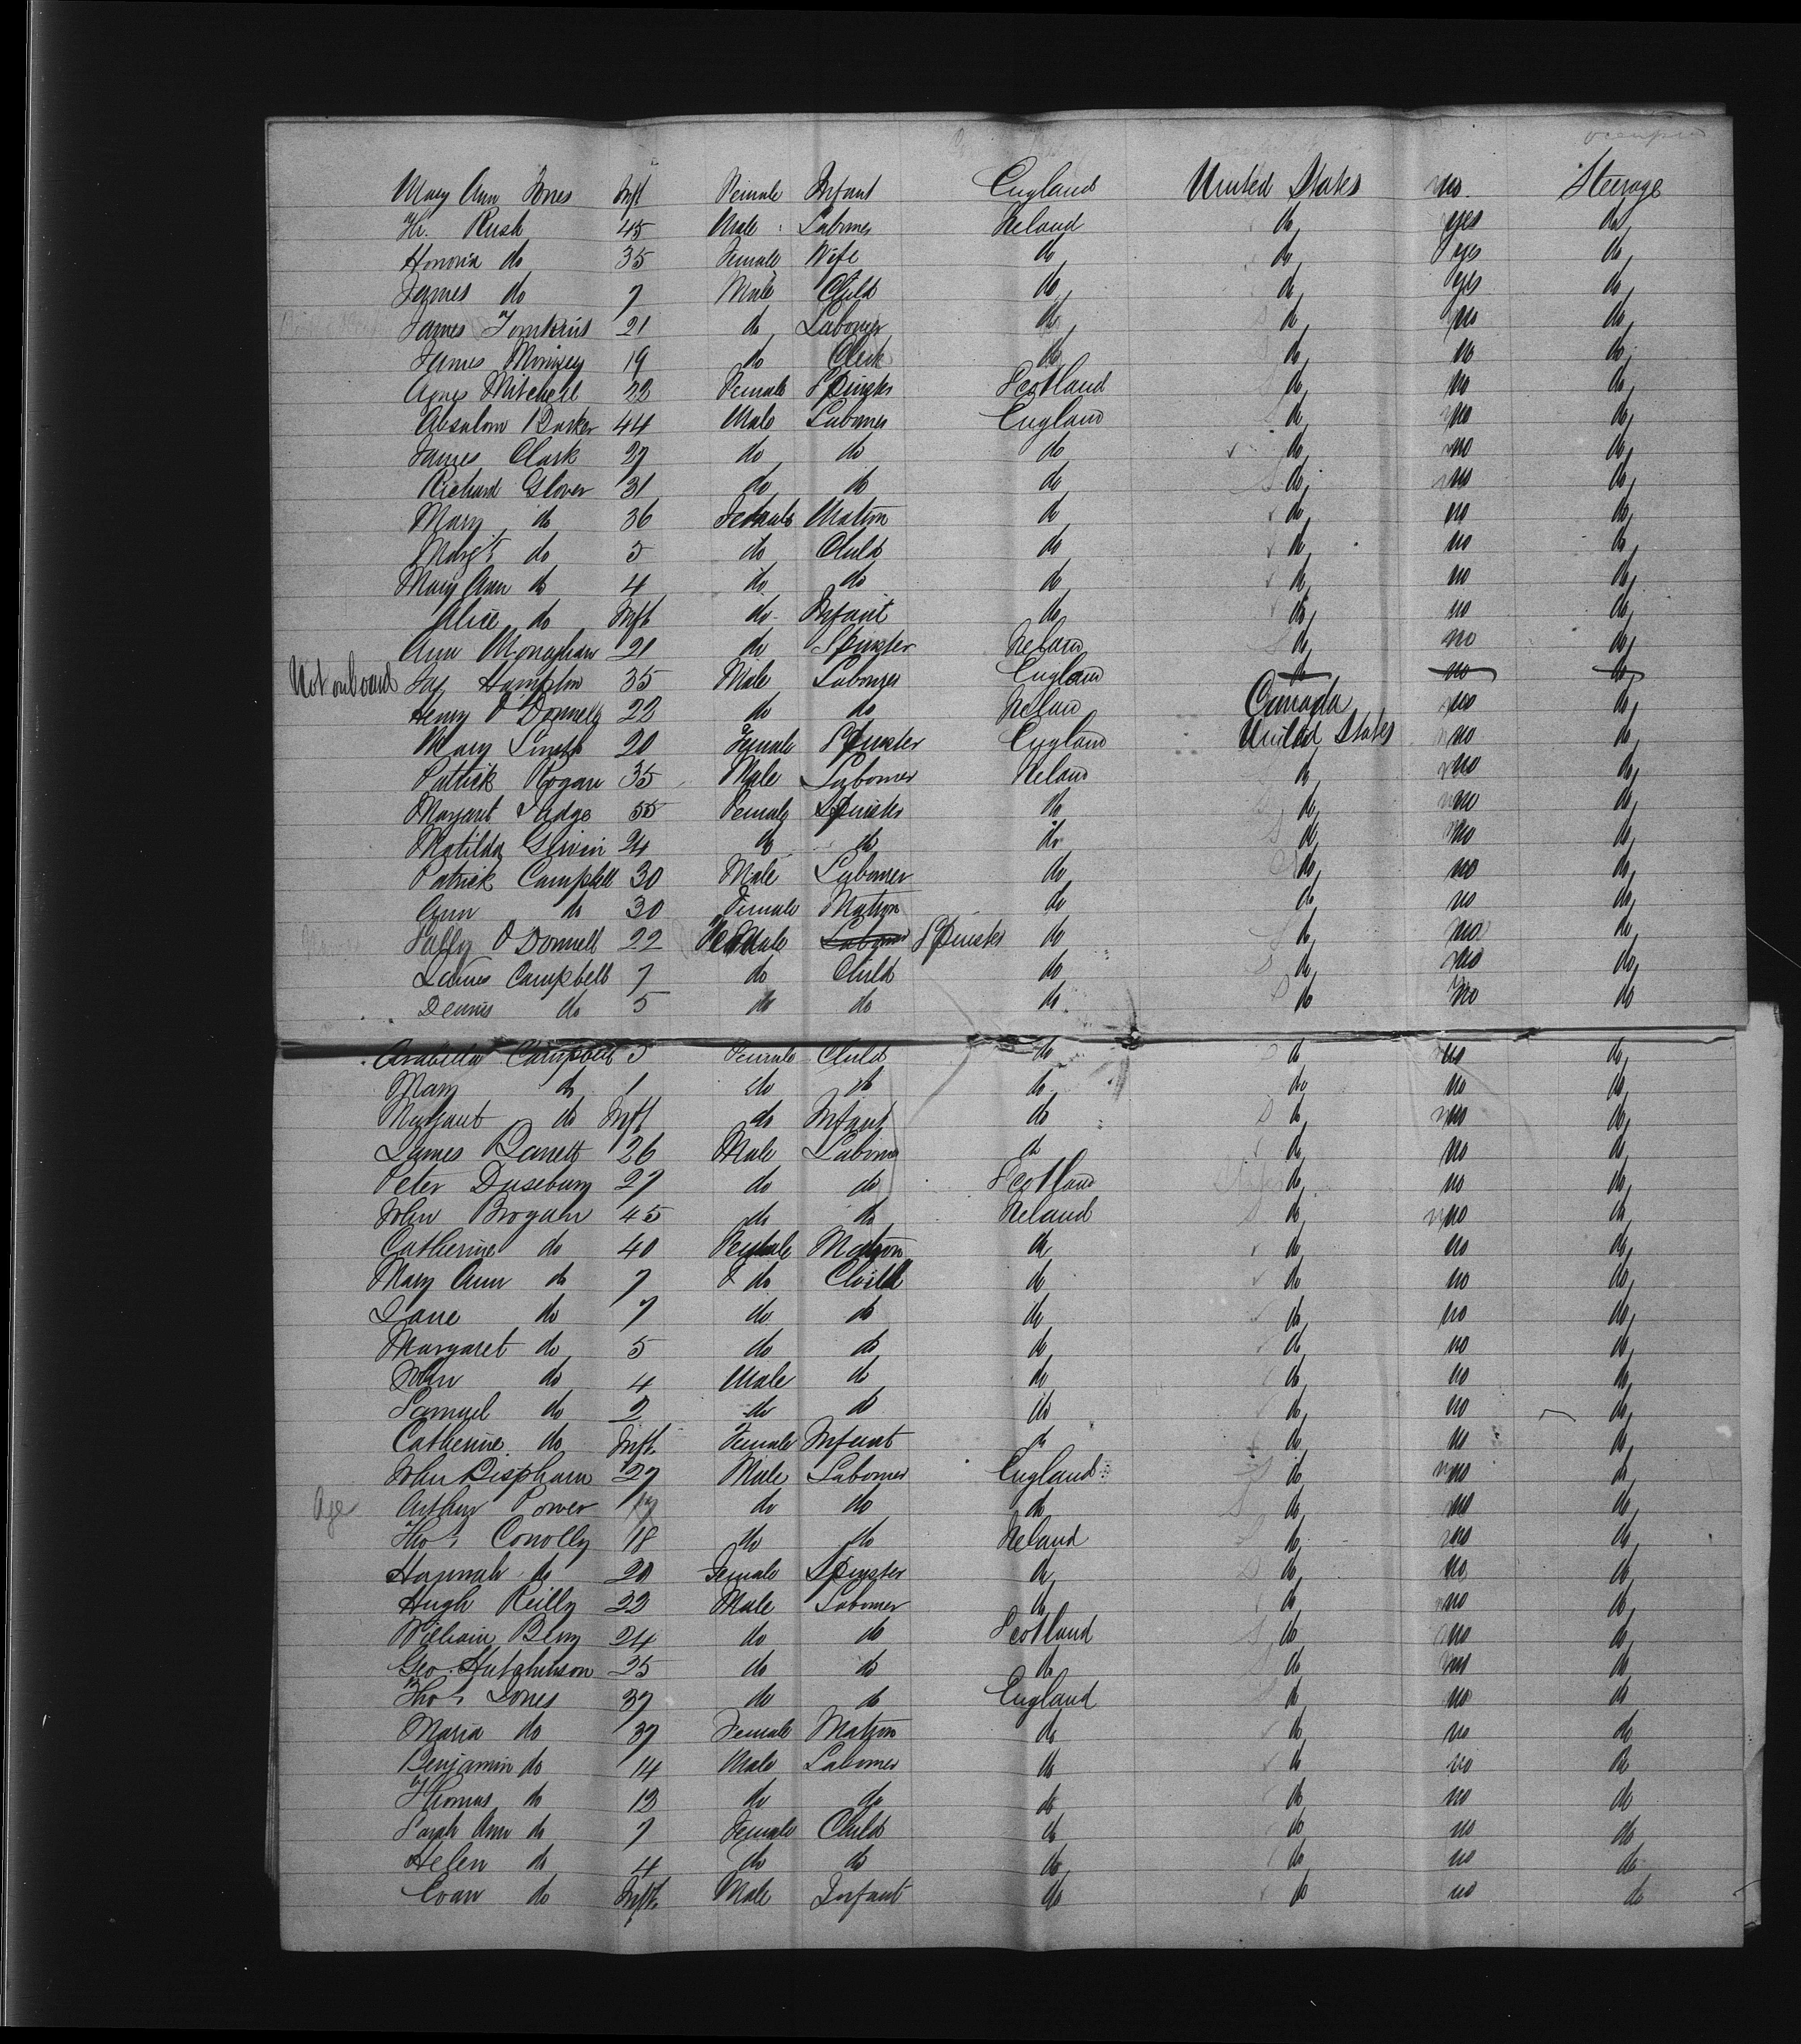 occupied
Mary Ann Jones Inft Female Infant England United States no Steerage
Th. Rush 45 Male Labourer Ireland do yes do
Honoria do 35 Female Wife do do yes do
James do 7 Male Child do do yes do
James Tomkins 21 do Labourer do do no do
James 19 do Clerk do do no do
Agnes Mitchell 22 Female Spinster Scotland do no do
Absalom Barker 44 Male Labourer England do no do
James Clark 27 do do do do no do
Richard Glover 31 do do do do no do
Mary do 36 Female Matron do do no do
Margt do 5 do Child do do no do
Mary Ann do 4 do do do do no do
Alice do Inft do Infant do do no do
Ann Monaghan 21 do Spinster Ireland do no do
Not on board Jas Hampton 35 Male Labourer England do no do
Henry O'Donnely 22 do do Ireland Canada no do
Mary Smith 20 Female Spinster England United States no do
Patrick Rogan 35 Male Labourer Ireland do no do
Margaret Judge 55 Female Spinster do do no do
Matilda Girvin 24 do do do do no do
Patrick Campbell 30 Male Labourer do do no do
Ann do 30 Female Matron do do no do
O'Donnell 22 Female Labourer Spinster do do no do
James Campbell 7 do Child do do no do
Dennis do 5 do do do do no do
Arabella Campbell 3 Female Child do do no do
Mary do 1 do do do do no do
Margaret do Inft do Infant do do no do
James Barrett 26 Male Labourer do do no do
Peter Dusebury 27 do do Scotland do no do
John Brogan 45 do do Ireland do no do
Catherine do 40 Female Matron do do no do
Mary Ann do 7 do Child do do no do
Jane do 7 do do do do no do
Margaret do 5 do do do do no do
John do 4 Male do do do no do
Samuel do 2 do do do do no do
Catherine do Inft Female Infant do do no do
John Bispham 27 Male Labourer England do no do
Age Arthur Power do do do do no do
Thos Conolly 18 do do Ireland do no do
Hannah do 20 Female Spinster do do no do
Hugh Reilly 22 Male Labourer do do no do
William Berry 24 do do Scotland do no do
Geo. Hutchinson 25 do do do do no do
Thos Jones 37 do do England do no do
Maria do 37 Female Matron do do no do
Benjamin do 14 Male Labourer do do no do
Thomas do 12 do do do do no do
Sarah Ann do 7 Female Child do do no do
Helen do 4 do do do do no do
Evan do Inft Male Infant do do no do